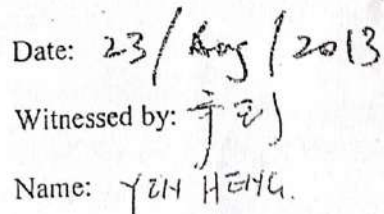 Date: 23/Aug/2013
Witnessed by:
Name: YEN HENG.